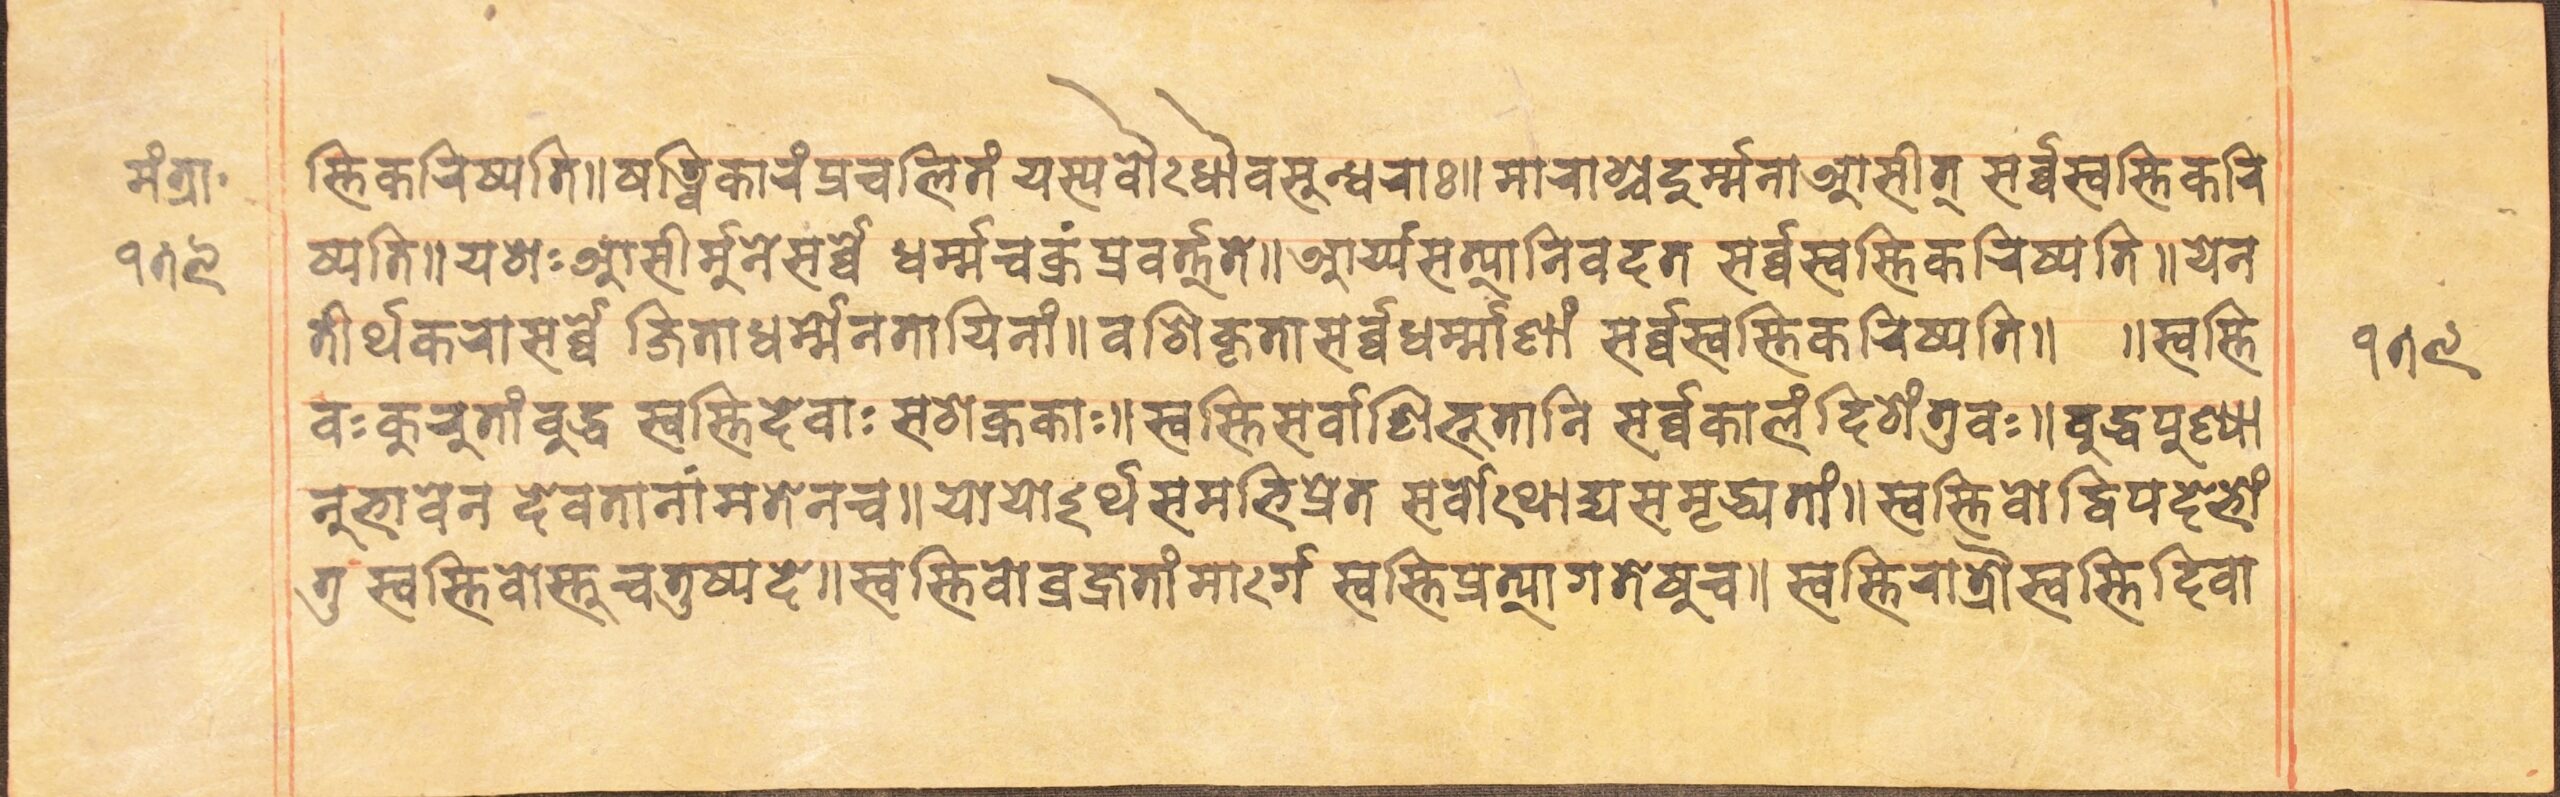 मंत्रा॰
१७९
स्तिकरिष्यति॥षड्विकारंप्रचलितं यस्यवौऽधौवसुन्धराः॥माराश्चदुर्म्मनाआसीत् सर्व्वस्वस्तिकरि
ष्यति॥यशेःआसीर्मुनेसर्व्वे धर्म्मचक्रंप्रवर्त्तते॥आर्य्यसत्यानिवदत सर्व्वस्वस्तिकरिष्यति॥येन
तीर्थकरासर्व्वे जिताधर्म्मेनतायिनां॥वशिकृतासर्व्वधर्म्माणां सर्व्वस्वस्तिकरिष्यति॥ ॥स्वस्ति
१७९
वःकुरुतांवुद्ध स्वस्तिदेवाःसशेक्रकाः॥स्वस्तिसर्वाणिभूतानि सर्व्वकालंदिशेंतुवः॥वुद्धपुण्या
नुभावेन देवतानांमतेनच॥योयोऽर्थसमभिप्रेत सर्वोऽथाद्यसमृद्ध्यतां॥स्वस्तिवोद्विपदेभों
तु स्वस्तिवोस्तुचतुष्पदे॥स्वस्तिवोव्रज्रतांमाऽर्ग स्वस्तिप्रत्यागतेषुच॥स्वस्तिरात्रौस्वस्तिदिवा